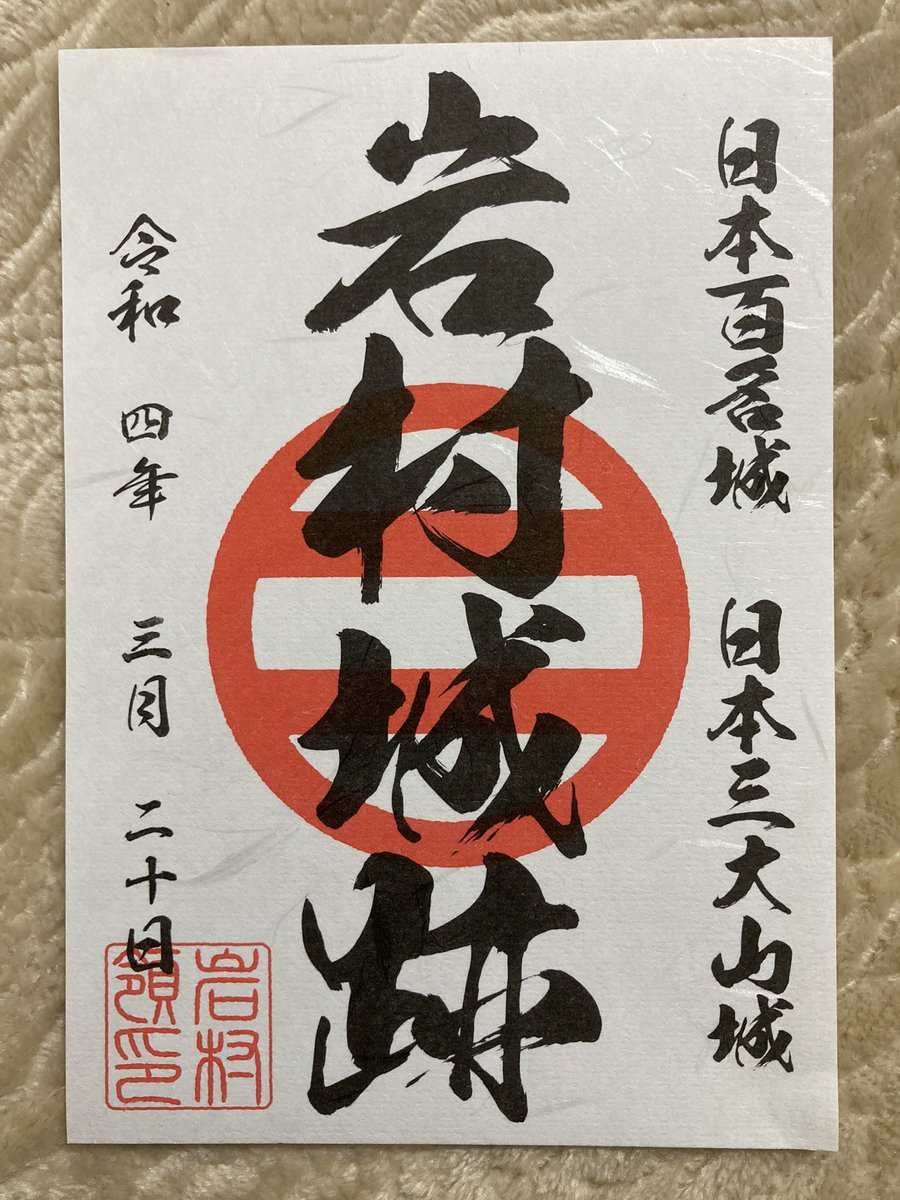 日本百名城 日本三大山城
岩村城跡
令和 四年 三月 二十日
岩村
領印